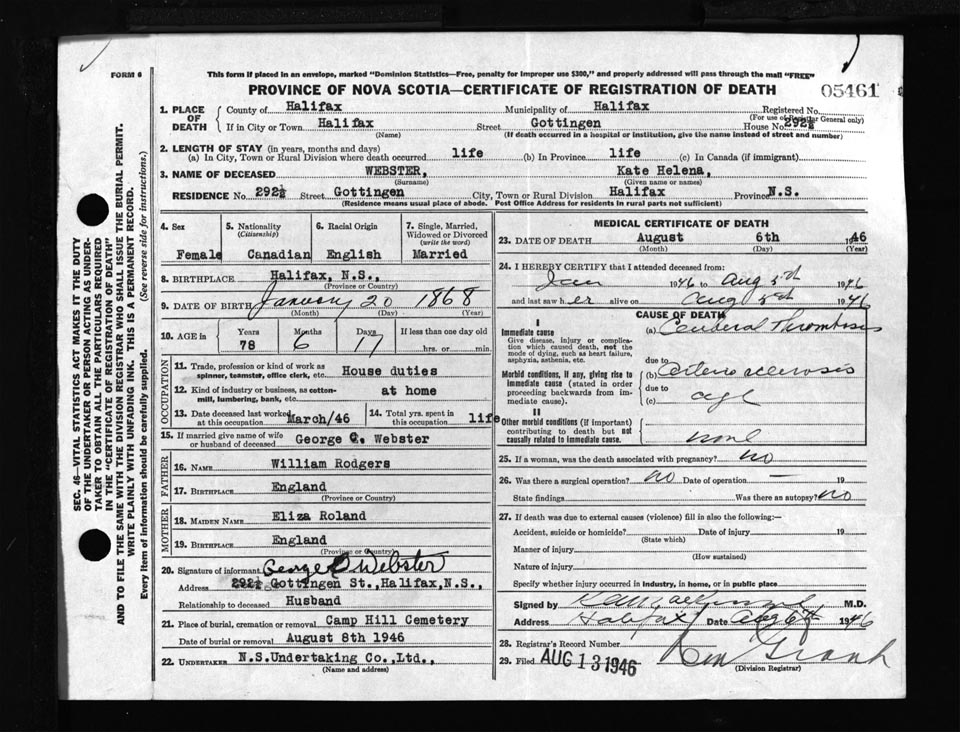 FORM 6
This form if placed in an envelope, marked "Dominion Statistics—Free, penalty for improper use $300," and properly addressed will pass through the mail "FREE"
PROVINCE OF NOVA SCOTIA—CERTIFICATE OF REGISTRATION OF DEATH
05461
1. PLACE OF DEATH
County of Halifax Municipality of Halifax Registered No.
(For use of Registrar General only)
If in City or Town Halifax Street Gottingen House No. 292½
(Name) (If death occurred in a hospital or institution, give the name instead of street and number)
2. LENGTH OF STAY (in years, months and days)
(a) In City, Town or Rural Division where death occurred life (b) In Province life (c) In Canada (if immigrant)
3. NAME OF DECEASED WEBSTER, Kate Helena,
(Surname) (Given name or names)
RESIDENCE No. 292½ Street Gottingen City, Town or Rural Division Halifax Province N.S.
(Residence means usual place of abode. Post Office Address for residents in rural parts not sufficient)
SEC. 46—VITAL STATISTICS ACT MAKES IT THE DUTY
OF THE UNDERTAKER OR PERSON ACTING AS UNDER-
TAKER TO OBTAIN ALL THE PARTICULARS REQUIRED
IN THE "CERTIFICATE OF REGISTRATION OF DEATH"
AND TO FILE THE SAME WITH THE DIVISION REGISTRAR WHO SHALL ISSUE THE BURIAL PERMIT.
WRITE PLAINLY WITH UNFADING INK. THIS IS A PERMANENT RECORD.
Every item of information should be carefully supplied. (See reverse side for instructions.)
4. Sex 5. Nationality 6. Racial Origin 7. Single, Married, Widowed or Divorced
(Citizenship) (write the word)
Female Canadian English Married
8. BIRTHPLACE Halifax, N.S.,
(Province or Country)
9. DATE OF BIRTH January 20 1868
(Month) (Day) (Year)
10. AGE Years Months Days If less than one day old
78 6 17 hrs. or min.
OCCUPATION
11. Trade, profession or kind of work as House duties
spinner, teamster, office clerk, etc.
12. Kind of industry or business, as cotton- at home
mill, lumbering, bank, etc.
13. Date deceased last worked at this occupation March/46 14. Total yrs. spent in this occupation life
15. If married give name of wife or husband of deceased George C. Webster
FATHER
16. NAME William Rodgers
17. BIRTHPLACE England
(Province or Country)
MOTHER
18. MAIDEN NAME Eliza Roland
19. BIRTHPLACE England
(Province or Country)
20. Signature of informant George Webster
Address 292½ Gottingen St., Halifax, N.S.,
Relationship to deceased Husband
21. Place of burial, cremation or removal Camp Hill Cemetery
Date of burial or removal August 8th 1946
22. UNDERTAKER N.S.Undertaking Co.,Ltd.,
(Name and address)
MEDICAL CERTIFICATE OF DEATH
23. DATE OF DEATH August 6th 1946
(Month) (Day) (Year)
24. I HEREBY CERTIFY that I attended deceased from:
Jan 1946 to Aug 5th 1946
and last saw her alive on Aug 5th 1946
CAUSE OF DEATH
I
Immediate cause
Give disease, injury or complica-
tion which caused death, not the
mode of dying, such as heart failure,
asphyxia, asthenia, etc.
(a) Cerebral Thrombosis
due to
Morbid conditions, if any, giving rise to
immediate cause (stated in order
proceeding backwards from im-
mediate cause).
(b) Arteriosclerosis
due to
(c) age
II
Other morbid conditions (if important)
contributing to death but not
causally related to immediate cause.
none
25. If a woman, was the death associated with pregnancy? no
26. Was there a surgical operation? no Date of operation — 19
State findings Was there an autopsy? no
27. If death was due to external causes (violence) fill in also the following:—
Accident, suicide or homicide? Date of injury 19
(State which)
Manner of injury
(How sustained)
Nature of injury
Specify whether injury occurred in industry, in home, or in public place
Signed by M.D.
Address Halifax Date Aug 6th 1946
28. Registrar's Record Number
29. Filed AUG 13 1946
(Division Registrar)